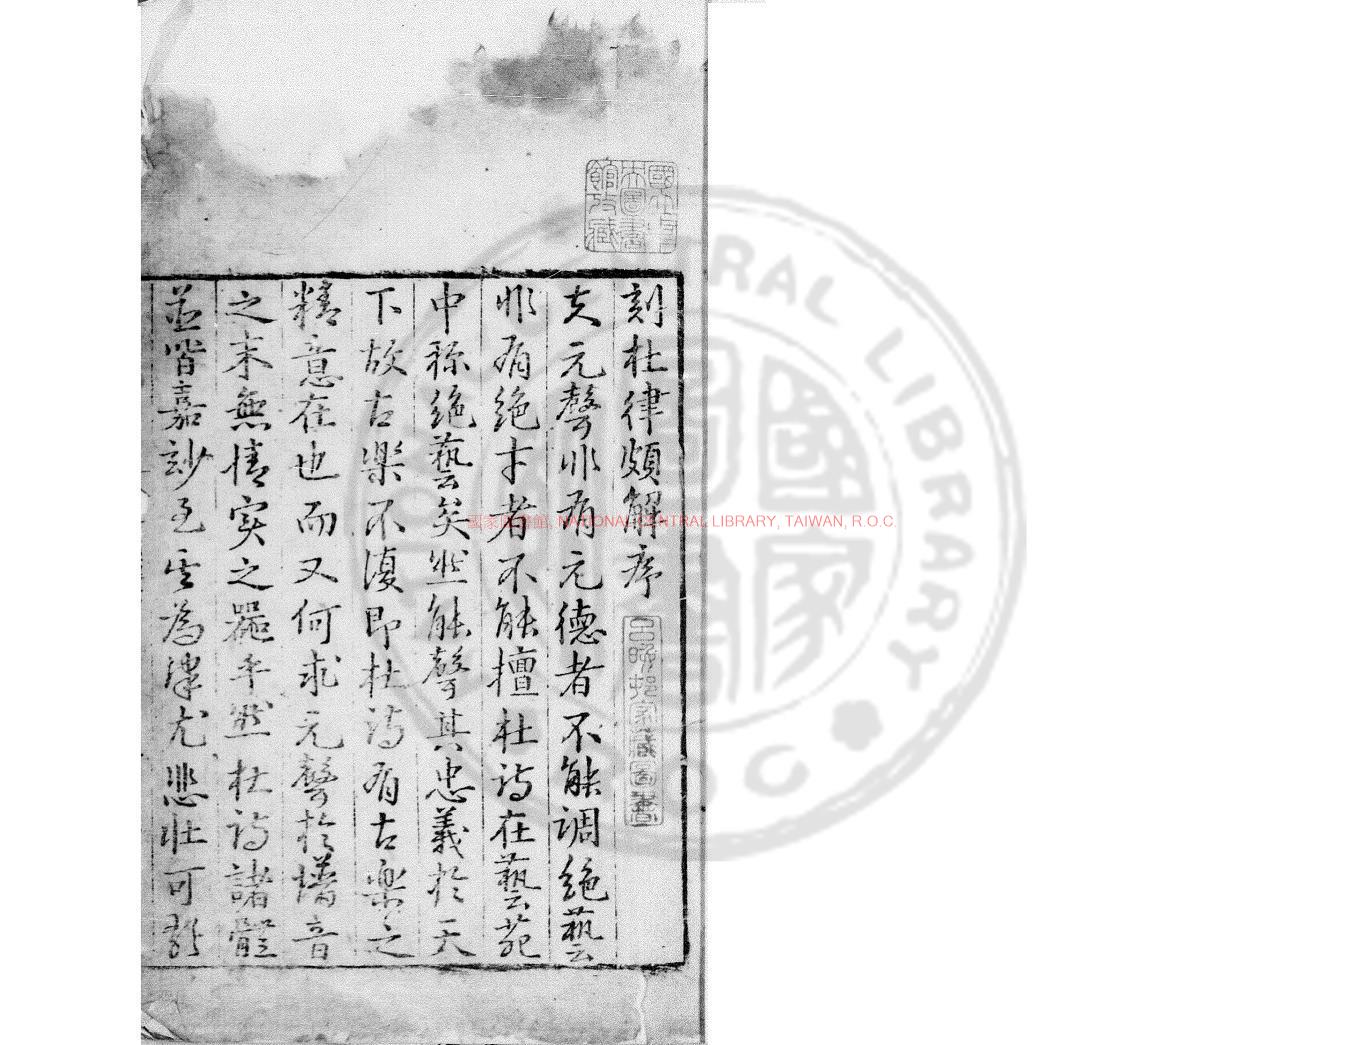 刻杜律頗解序
夫元聲非有元德者不能調絕藝
非有絕才者不能擅杜詩在藝苑
中稱絕藝矣然能聲其忠義於天
下故古樂不復即杜詩有古樂之
精意在也而又何求元聲於播音
之末無情實之器乎然杜詩諸體
並皆嘉玅至其為律尤悲壯可
國立中
央圖書
館收藏
呂晚邨家藏圖書
國家圖書館, NATIONAL CENTRAL LIBRARY, TAIWAN, R.O.C.
CENTRAL LIBRARY
國家